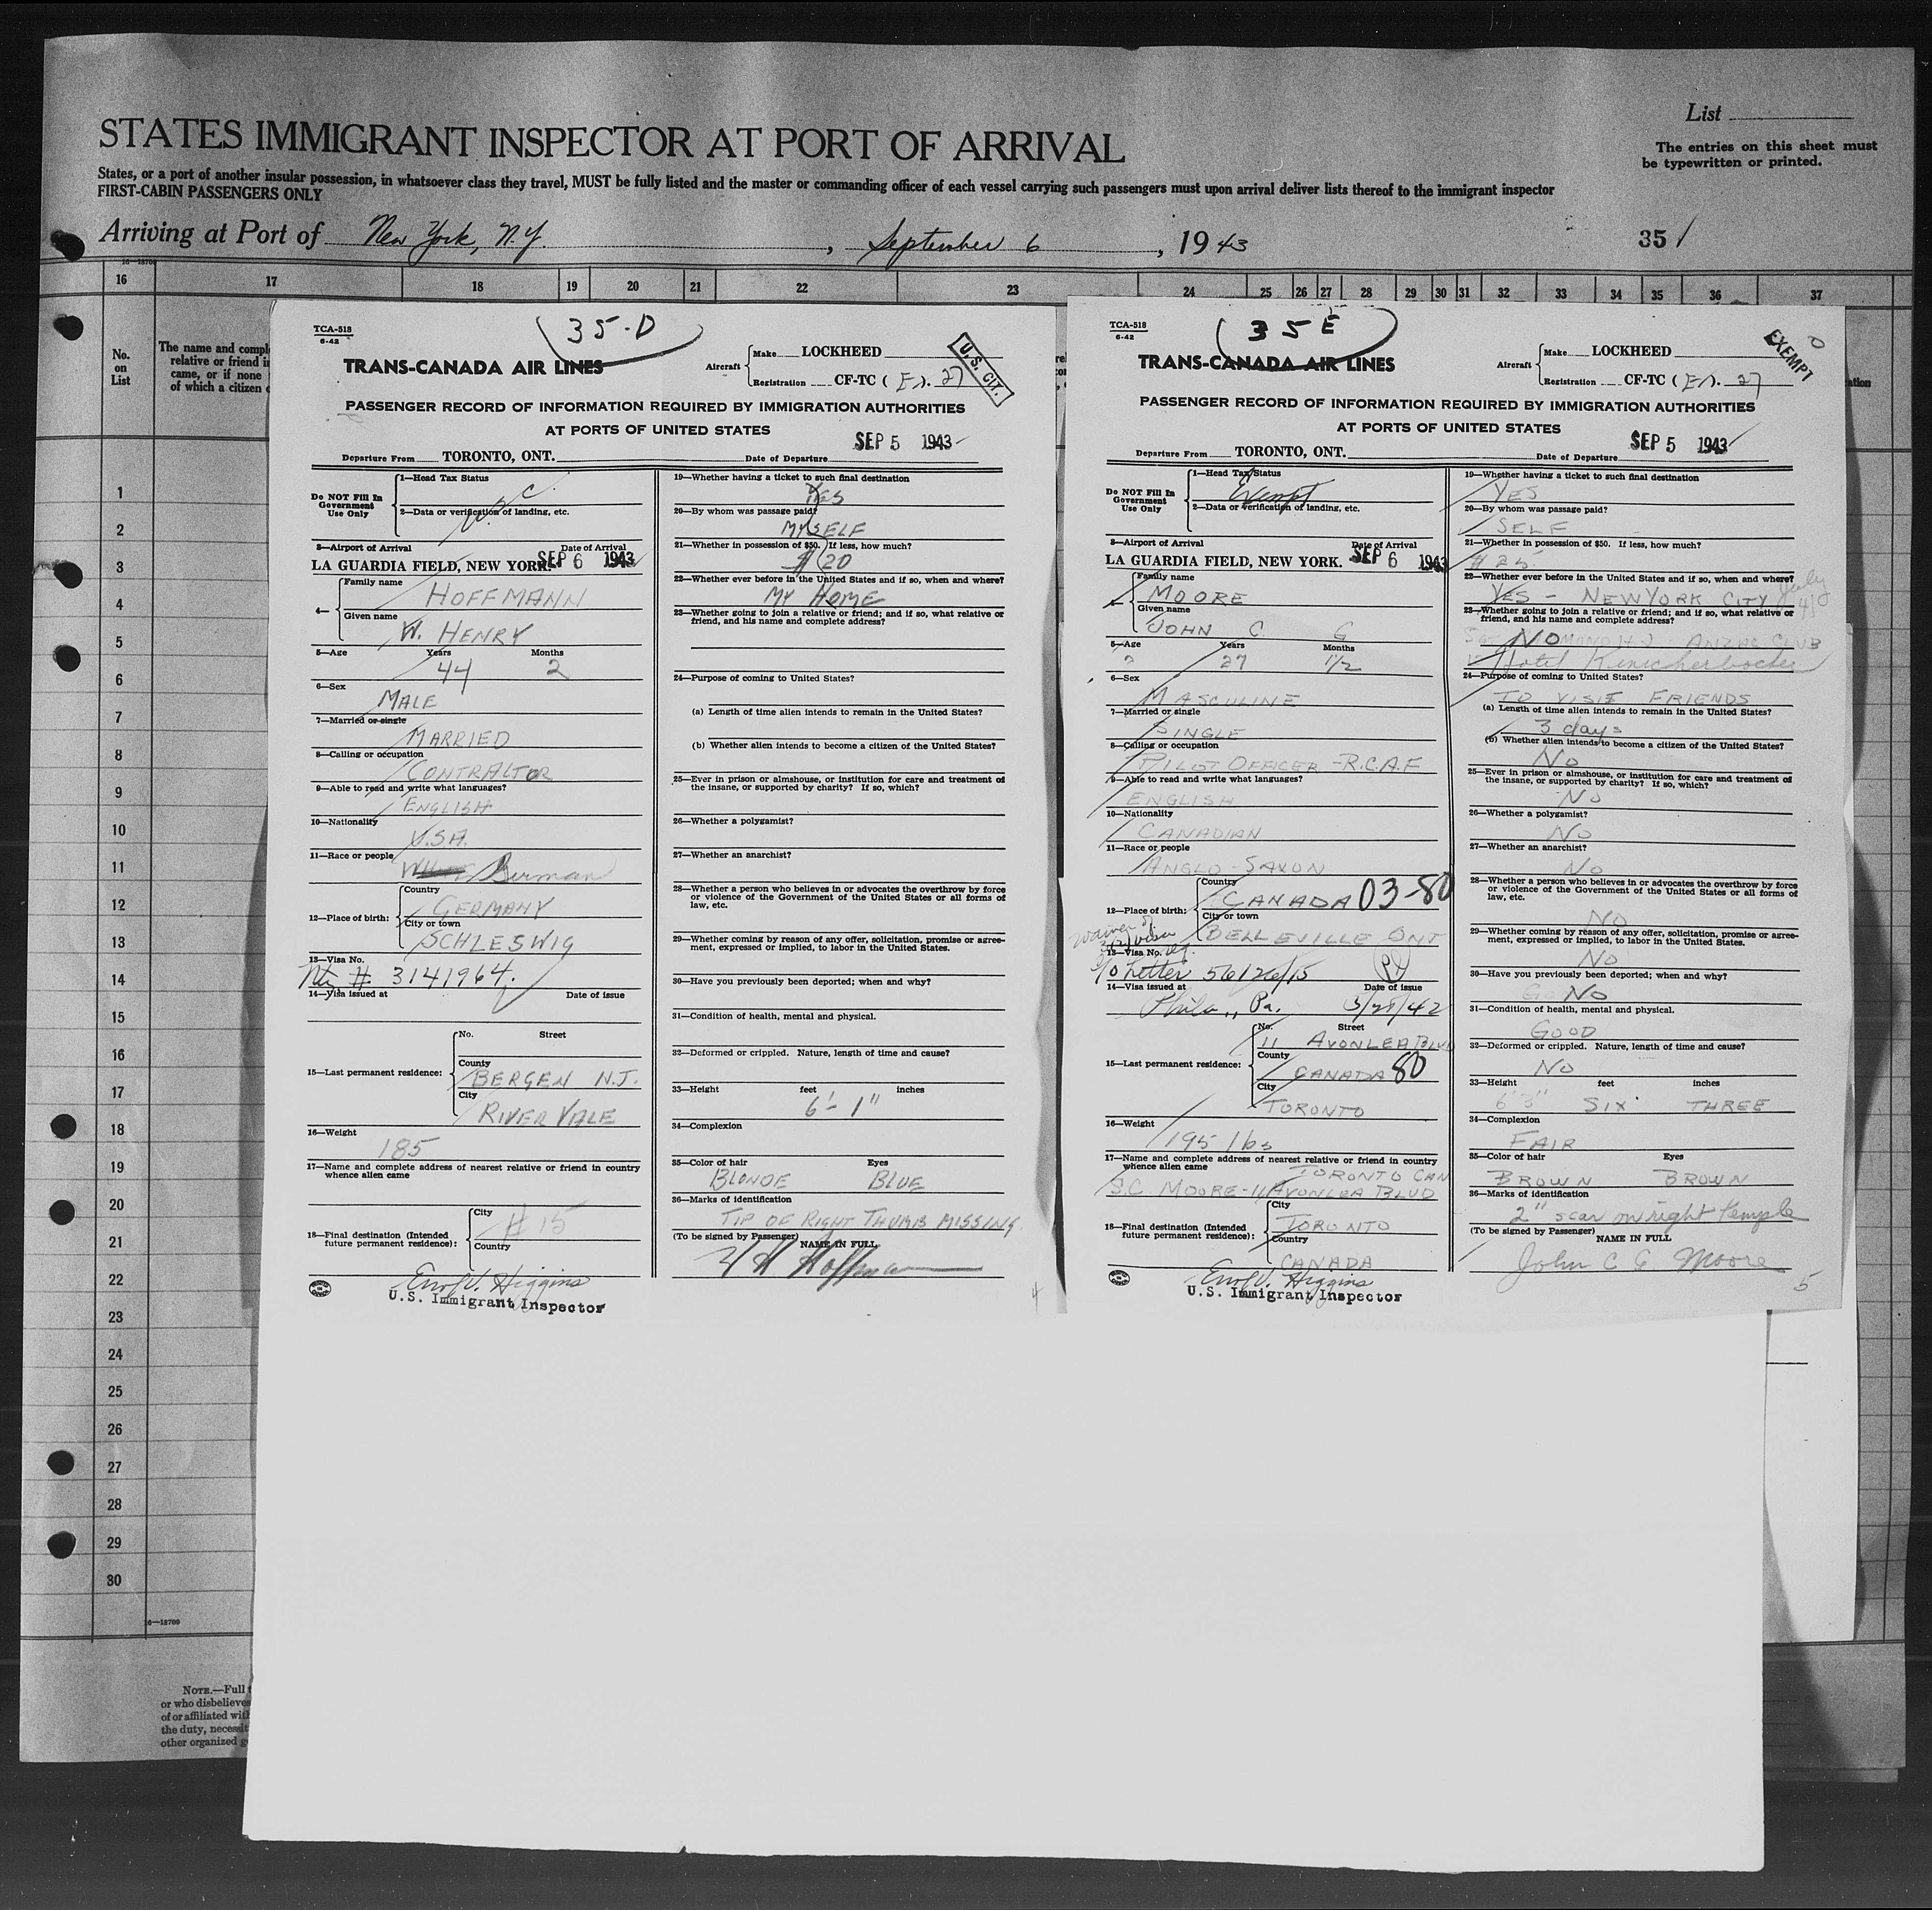 List
STATES IMMIGRANT INSPECTOR AT PORT OF ARRIVAL
The entries on this sheet must
be typewritten or printed.
States, or a port of another insular possession, in whatsoever class they travel, MUST be fully listed and the master or commanding officer of each vessel carrying such passengers must upon arrival deliver lists thereof to the immigrant inspector
FIRST-CABIN PASSENGERS ONLY
Arriving at Port of New York, N.Y. , September 6 , 1943
35 1
16—18700
16 17 18 19 20 21 22 23 24 25 26 27 28 29 30 31 32 33 34 35 36 37
No.
on
List
The name and compl
relative or friend i
came, or if none
of which a citizen
1
2
3
4
5
6
7
8
9
10
11
12
13
14
15
16
17
18
19
20
21
22
23
24
25
26
27
28
29
30
16—18700
NOTE.—Full
or who disbelieves
of or affiliated wit
the duty, necessit
other organized g
TCA-518
6-42
35-D
TRANS-CANADA AIR LINES
Aircraft
Make LOCKHEED
Registration CF-TC ( 27
U.S. CIT.
PASSENGER RECORD OF INFORMATION REQUIRED BY IMMIGRATION AUTHORITIES
AT PORTS OF UNITED STATES
SEP 5 1943
Departure From TORONTO, ONT. Date of Departure
Do NOT Fill In
Government
Use Only
1—Head Tax Status
2—Data or verification of landing, etc.
3—Airport of Arrival Date of Arrival
LA GUARDIA FIELD, NEW YORK. SEP 6 1943
4—
Family name
HOFFMANN
Given name
W. HENRY
5—Age Years Months
44 2
6—Sex
MALE
7—Married or single
MARRIED
8—Calling or occupation
CONTRACTOR
9—Able to read and write what languages?
ENGLISH
10—Nationality
U.S.A.
11—Race or people
German
12—Place of birth:
Country
GERMANY
City or town
SCHLESWIG
13—Visa No.
# 3141964.
14—Visa issued at Date of issue
15—Last permanent residence:
No. Street
County
BERGEN N.J.
City
RIVER VALE
16—Weight
185
17—Name and complete address of nearest relative or friend in country
whence alien came
18—Final destination (Intended
future permanent residence):
City
#15
Country
Higgins
U.S. Immigrant Inspector
19—Whether having a ticket to such final destination
YES
20—By whom was passage paid?
MYSELF
21—Whether in possession of $50. If less, how much?
$ 20
22—Whether ever before in the United States and if so, when and where?
MY HOME
23—Whether going to join a relative or friend; and if so, what relative or
friend, and his name and complete address?
24—Purpose of coming to United States?
(a) Length of time alien intends to remain in the United States?
(b) Whether alien intends to become a citizen of the United States?
25—Ever in prison or almshouse, or institution for care and treatment of
the insane, or supported by charity? If so, which?
26—Whether a polygamist?
27—Whether an anarchist?
28—Whether a person who believes in or advocates the overthrow by force
or violence of the Government of the United States or all forms of
law, etc.
29—Whether coming by reason of any offer, solicitation, promise or agree-
ment, expressed or implied, to labor in the United States.
30—Have you previously been deported; when and why?
31—Condition of health, mental and physical.
32—Deformed or crippled. Nature, length of time and cause?
33—Height feet inches
6'-1"
34—Complexion
35—Color of hair Eyes
BLONDE BLUE
36—Marks of identification
TIP OF RIGHT THUMB MISSING
(To be signed by Passenger) NAME IN FULL
W H Hoffmann
4
TCA-518
6-42
35 E
TRANS-CANADA AIR LINES
Aircraft
Make LOCKHEED
Registration CF-TC ( 27
EXEMPT
PASSENGER RECORD OF INFORMATION REQUIRED BY IMMIGRATION AUTHORITIES
AT PORTS OF UNITED STATES
SEP 5 1943
Departure From TORONTO, ONT. Date of Departure
Do NOT Fill In
Government
Use Only
1—Head Tax Status
Exempt
2—Data or verification of landing, etc.
3—Airport of Arrival Date of Arrival
LA GUARDIA FIELD, NEW YORK. SEP 6 1943
4—
Family name
MOORE
Given name
JOHN C. G
5—Age Years Months
27 1/2
6—Sex
MASCULINE
7—Married or single
SINGLE
8—Calling or occupation
PILOT OFFICER - R.C.A.F
9—Able to read and write what languages?
ENGLISH
10—Nationality
CANADIAN
11—Race or people
ANGLO-SAXON
12—Place of birth:
Country
CANADA 03-80
City or town
BELLEVILLE ONT
waiver of
visa
13—Visa No.
Letter 56126/15
14—Visa issued at Date of issue
Phila., Pa. 3/21/42
15—Last permanent residence:
No. Street
11 AVONLEA BLVD
County
CANADA 80
City
TORONTO
16—Weight
195 lbs
17—Name and complete address of nearest relative or friend in country
whence alien came
TORONTO CAN
S.C. MOORE-11 AVONLEA BLVD
18—Final destination (Intended
future permanent residence):
City
TORONTO
Country
CANADA
Higgins
U.S. Immigrant Inspector
19—Whether having a ticket to such final destination
YES
20—By whom was passage paid?
SELF
21—Whether in possession of $50. If less, how much?
$ 25
22—Whether ever before in the United States and if so, when and where?
YES - NEW YORK CITY
23—Whether going to join a relative or friend; and if so, what relative or
friend, and his name and complete address?
NO ANZAC CLUB
Hotel Knickerbocker
24—Purpose of coming to United States?
TO VISIT FRIENDS
(a) Length of time alien intends to remain in the United States?
3 days
(b) Whether alien intends to become a citizen of the United States?
No
25—Ever in prison or almshouse, or institution for care and treatment of
the insane, or supported by charity? If so, which?
No
26—Whether a polygamist?
No
27—Whether an anarchist?
No
28—Whether a person who believes in or advocates the overthrow by force
or violence of the Government of the United States or all forms of
law, etc.
No
29—Whether coming by reason of any offer, solicitation, promise or agree-
ment, expressed or implied, to labor in the United States.
No
30—Have you previously been deported; when and why?
No
31—Condition of health, mental and physical.
GOOD
32—Deformed or crippled. Nature, length of time and cause?
No
33—Height feet inches
6'3" SIX THREE
34—Complexion
FAIR
35—Color of hair Eyes
BROWN BROWN
36—Marks of identification
2" scar on right temple
(To be signed by Passenger) NAME IN FULL
John C G. Moore
5